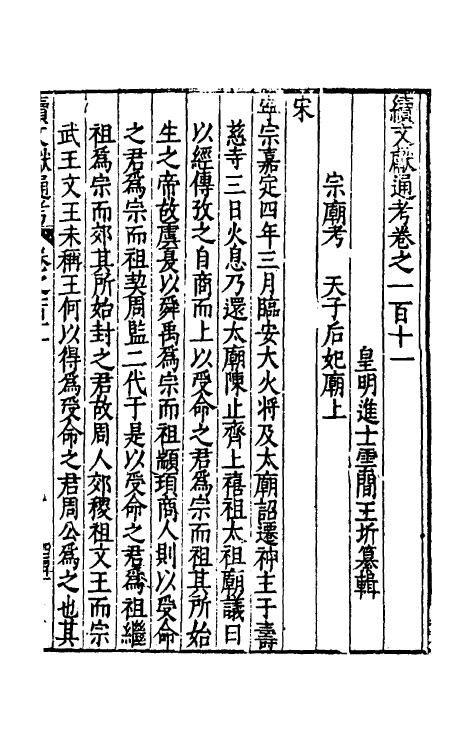 續文獻通考卷之一百十一
皇明進士雲間王圻纂輯
宗廟考　天子后妃廟上
宋
寧宗嘉定四年三月臨安大火將及太廟詔遷神主于壽
慈寺三日火息乃還太廟陳止齊上禧祖太祖廟議曰
以經傳攷之自商而上以受命之君爲宗而祖其所始
生之帝故虞夏以舜禹爲宗而祖顓頊商人則以受命
之君爲宗而祖契周監二代于是以受命之君爲祖繼
祖爲宗而郊其所始封之君故周人郊稷祖文王而宗
武王文王未稱王何以得爲受命之君周公爲之也其
續文獻通考